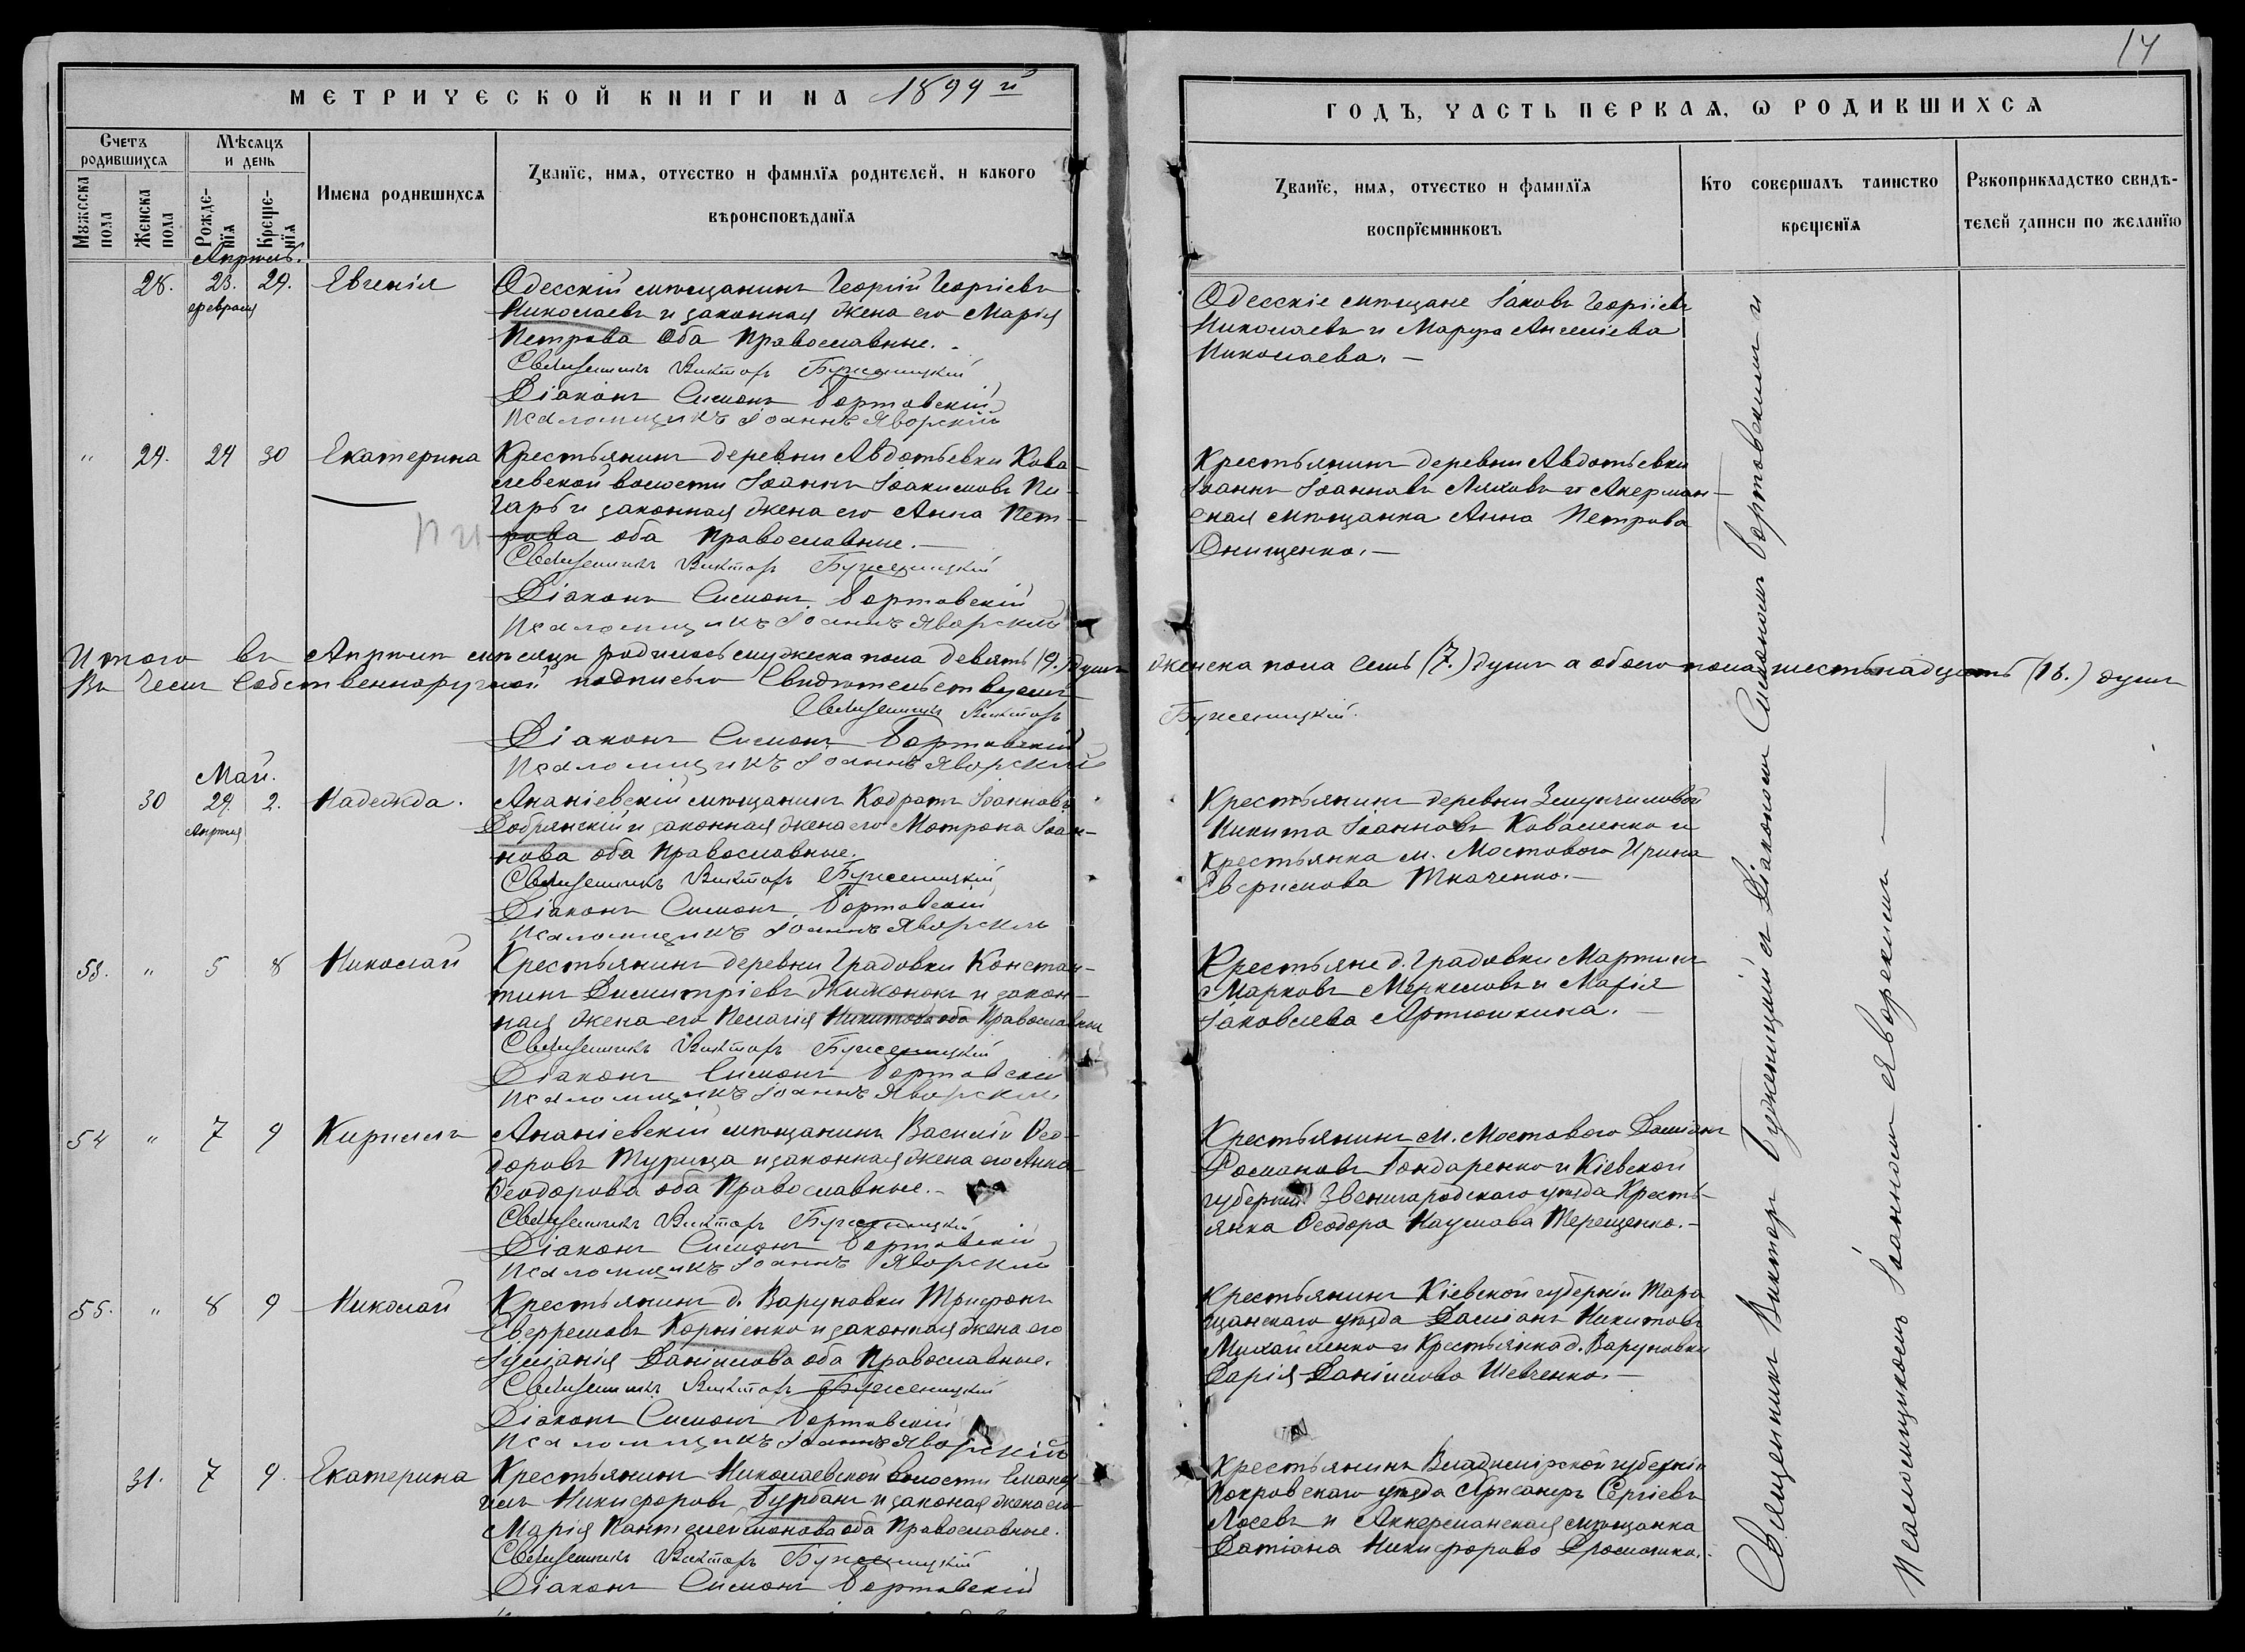 14
МЕТРИЧЕСКОЙ КНИГИ НА 1899 й
ГОДЪ, ЧАСТЬ ПЕРВАЯ, Ѡ РОДИВШИХСЯ
Счетъ родившихся
Мѣсяцъ и день
Мужеска пола
Женска пола
Рожденїя
Крещенїя
Имена родившихся
Званїе, имя, отчество и фамилїя родителей, и какого
вѣроисповѣданїя
Званїе, имя, отчество и фамилїя
воспрїемниковъ
Кто совершалъ таинство
крещенїя
Рукоприкладство свидѣ-
телей записи по желанїю
Апрель.
28. 23. 29. Евгенія
февраля
Одесскій мѣщанинъ Георгій Георгіевъ
Николаевъ и законная жена его Марія
Петрова Оба Православные. -
Священникъ Викторъ Буженицкій
Діаконъ Симонъ Бортовскій
Псаломщикъ Іоаннъ Яворскій
Одесскіе мѣщане Іаковъ Георгіевъ
Николаевъ и Марфа
Николаева. —
" 29. 24 30 Екатерина
Крестьянинъ деревни Авдотьевки Кова-
левской волости Іоаннъ Іоакимовъ Пи-
гарь и законная жена его Анна Пет-
рова оба Православные. —
Священникъ Викторъ Буженицкій
Діаконъ Симонъ Бортовскій
Псаломщикъ Іоаннъ Яворскій
Крестьянинъ деревни Авдотьевки
Іоаннъ Іоанновъ Ляховъ и Акерман-
ская мѣщанка Анна Петрова
Онищенко. —
Итого въ Апрѣлѣ мѣсяцѣ родилось мужеска пола девять (9.) душъ женска пола семь (7.) душъ а обоего пола шестьнадцать (16.) душъ
Въ чемъ собственноручной подписью Свидѣтельствуемъ
Священникъ Викторъ Буженицкій.
Діаконъ Симонъ Бортовскій
Псаломщикъ Іоаннъ Яворскій
Май.
30 29. 2. Надежда.
Апреля
Ананіевскій мѣщанинъ Кодратъ Іоанновъ
Добрянскій и законная жена его Мотрона Іоан-
нова оба Православные.
Священникъ Викторъ Буженицкій
Діаконъ Симонъ Бортовскій
Псаломщикъ Іоаннъ Яворскій
Крестьянинъ деревни
Никита Іоанновъ Коваленко и
Крестьянка м. Мостового Ирина
Ткаченко. —
53. " 5 8 Николай
Крестьянинъ деревни Градовки Констан-
тинъ Димитріевъ и закон-
ная жена его Пелагія Никитова оба Православные
Священникъ Викторъ Буженицкій
Діаконъ Симонъ Бортовскій
Псаломщикъ Іоаннъ Яворскій
Крестьяне д. Градовки Мартинъ
Марковъ и Марія
Іаковлева Артюшкина. —
54 " 7 9 Кириллъ
Ананіевскій мѣщанинъ Василій Ѳео-
доровъ Турица и законная жена его Анна
Ѳеодорова оба Православные. -
Священникъ Викторъ Буженицкій
Діаконъ Симонъ Бортовскій
Псаломщикъ Іоаннъ Яворскій
Крестьянинъ м. Мостового Даміанъ
Романовъ Бондаренко и Кіевской
губерніи Звенигородскаго уѣзда Кресть-
янка Ѳеодора Наумова Терещенко. -
55. " 8 9 Николай
Крестьянинъ д. Варуновки Трифонъ
Корніенко и законная жена его
Іуліанія Даніилова оба Православные.
Священникъ Викторъ Буженицкій
Діаконъ Симонъ Бортовскій
Псаломщикъ Іоаннъ Яворскій
Крестьянинъ Кіевской губерніи Тара
щанскаго уѣзда Даміанъ Никитовъ
Михайленко и Крестьянка д. Варуновки
Дарія Даніилова Шевченко. —
31. 7 9. Екатерина
Крестьянинъ Николаевской волости Емануи
илъ Никифоровъ Бурбанъ и законая жена его
Марія Пантелеимонова оба Православные.
Священникъ Викторъ Буженицкій
Діаконъ Симонъ Бортовскій
Крестьянинъ Владимірской губерніи
Покровскаго уѣзда Сергіевъ
Лосевъ и Аккерманская мѣщанка
Татіана Никифорова
Священникъ Викторъ Буженицкій съ Діакономъ Симономъ Бортовскимъ и
Псаломщикомъ Іоанномъ Яворскимъ —